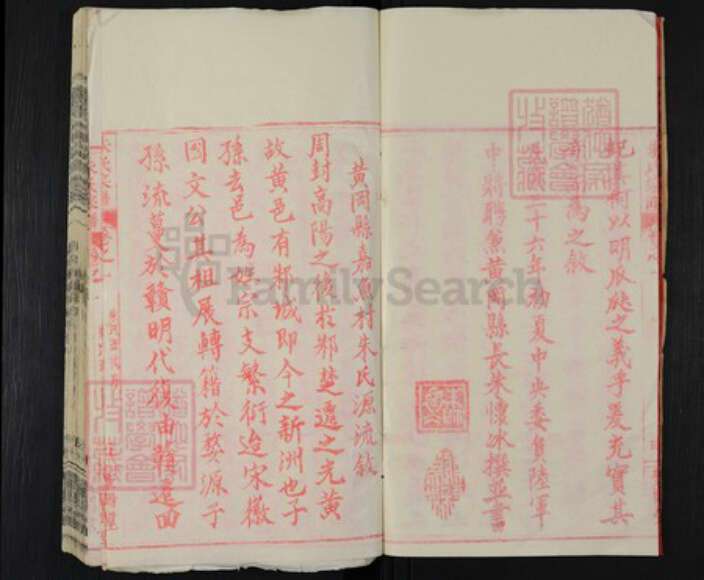 紀其衡以明瓜瓞之義予爰充實其
為之敘
二十六年初夏中央委員陸軍
中將聘兼黃岡縣長朱懷冰撰並書
黃岡縣嘉魚村朱氏源流敘
周封高陽之後於邾楚遷之光黃
故黃邑有邾城即今之新洲也子
孫去邑為姓宗支繁衍迨宋徽
國文公其祖展轉籍於婺源子
孫流蔓於贛明代復由贛遷
FamilySearch